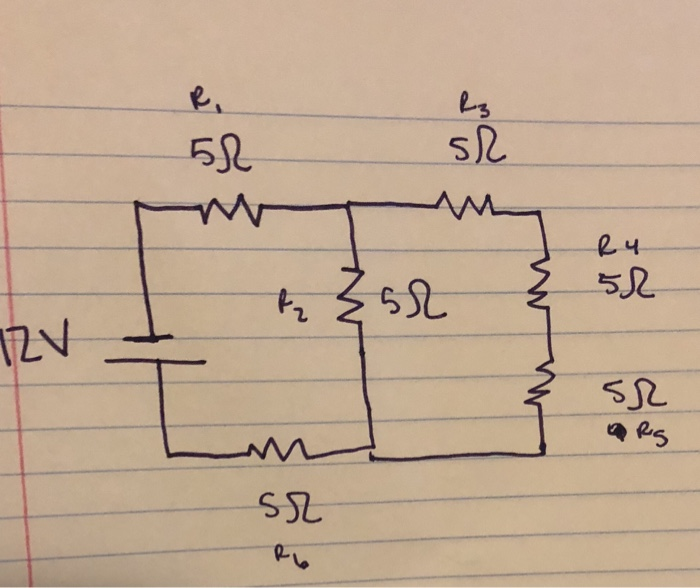 R1
5Ω
R3
5Ω
R4
5Ω
R2
5Ω
12V
5Ω
R5
5Ω
R6